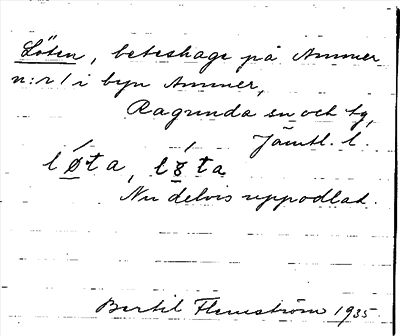 Löten, beteshage på Ammer
n:r 1 i byn Ammer,
Ragunda sn och tg,
Jämtl. l.
lǿta, lǿta
Nu delvis uppodlad.
Bertil Flemström 1935